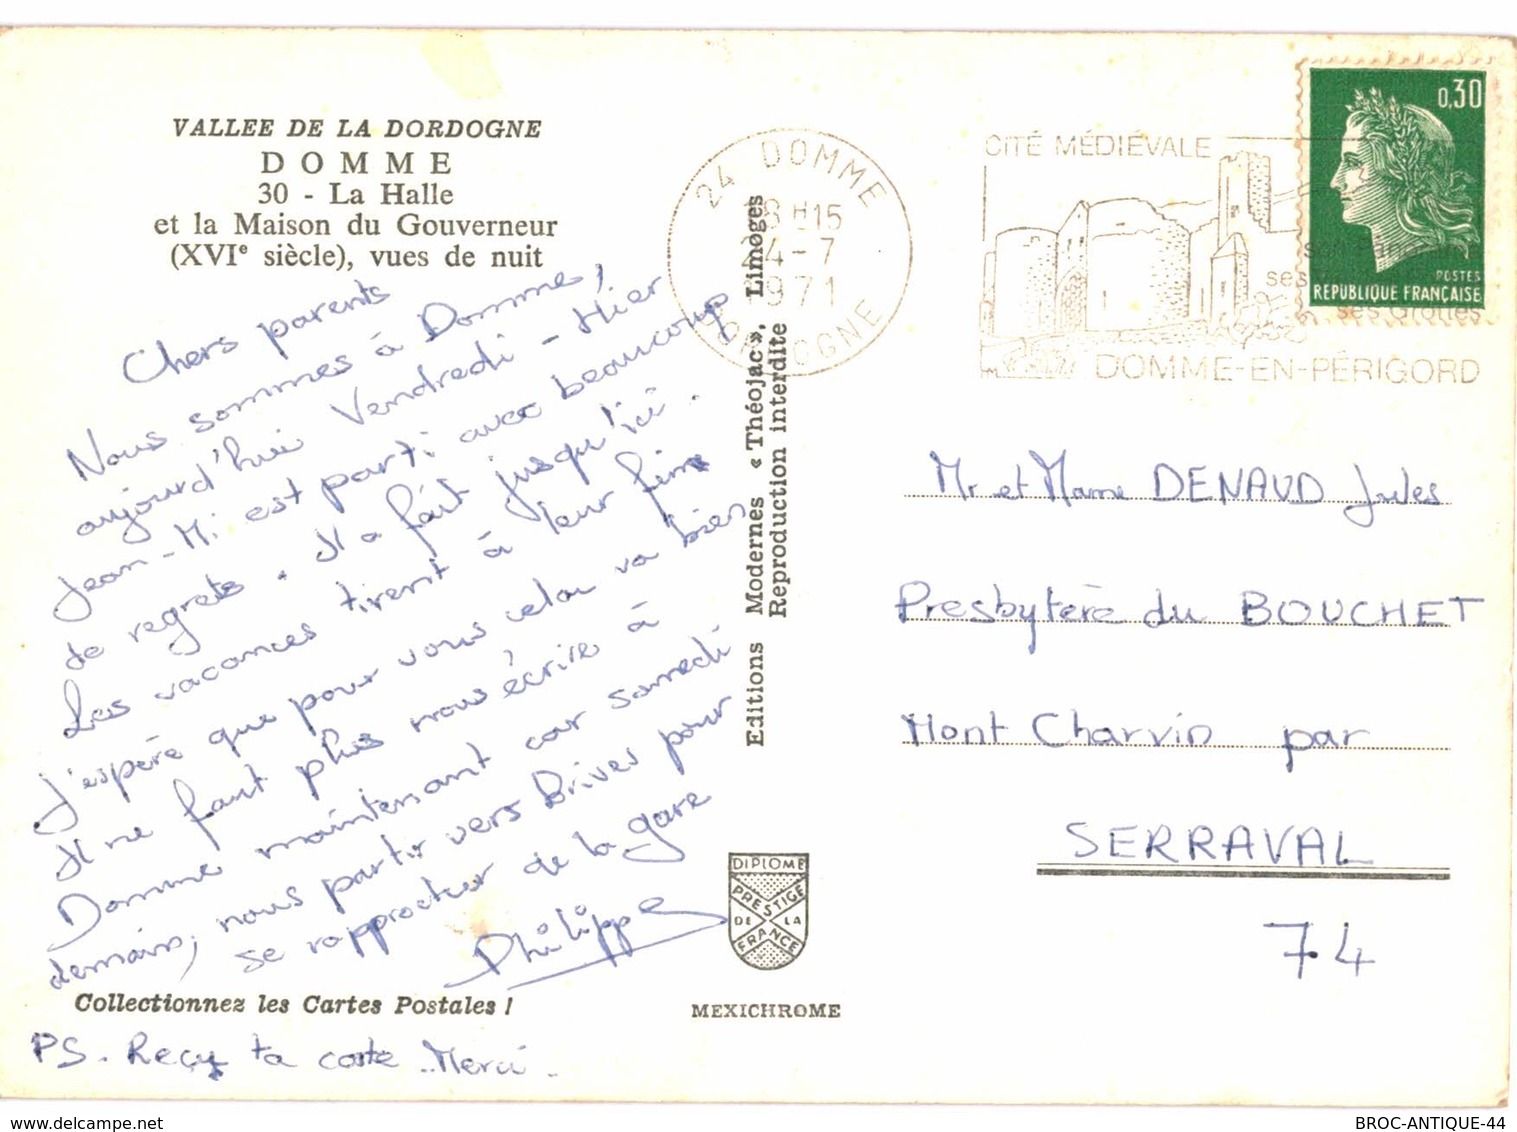 VALLEE DE LA DORDOGNE
DOMME
30 - La Halle
et la Maison du Gouverneur
(XVIe siècle), vues de nuit
Chers parents
Nous sommes à Domme,
aujourd'hui Vendredi - Hier
Jean-Mi est parti avec beaucoup
de regrets. Il a fait jusqu'ici.
Les vacances tirent à leur fin
J'espère que pour vous cela va bien
Il ne faut plus nous écrire à
Domme maintenant car samedi
demain, nous partir vers Brives pour
se rapprocher de la gare
Philippe
Collectionnez les Cartes Postales !
PS. Reçu ta carte. Merci.
Editions Modernes « Théojac », Limoges
Reproduction interdite
DIPLOME
PRESTIGE
DE LA
FRANCE
MEXICHROME
24 DOMME
18 H15
24-7
1971
DORDOGNE
CITÉ MÉDIÉVALE
son Panorama
ses
ses Grottes
DOMME-EN-PÉRIGORD
0,30
POSTES
REPUBLIQUE FRANÇAISE
Mr et Mame DENAUD Jules
Presbytère du BOUCHET
Mont Charvin par
SERRAVAL
74
www.delcampe.net
BROC-ANTIQUE-44